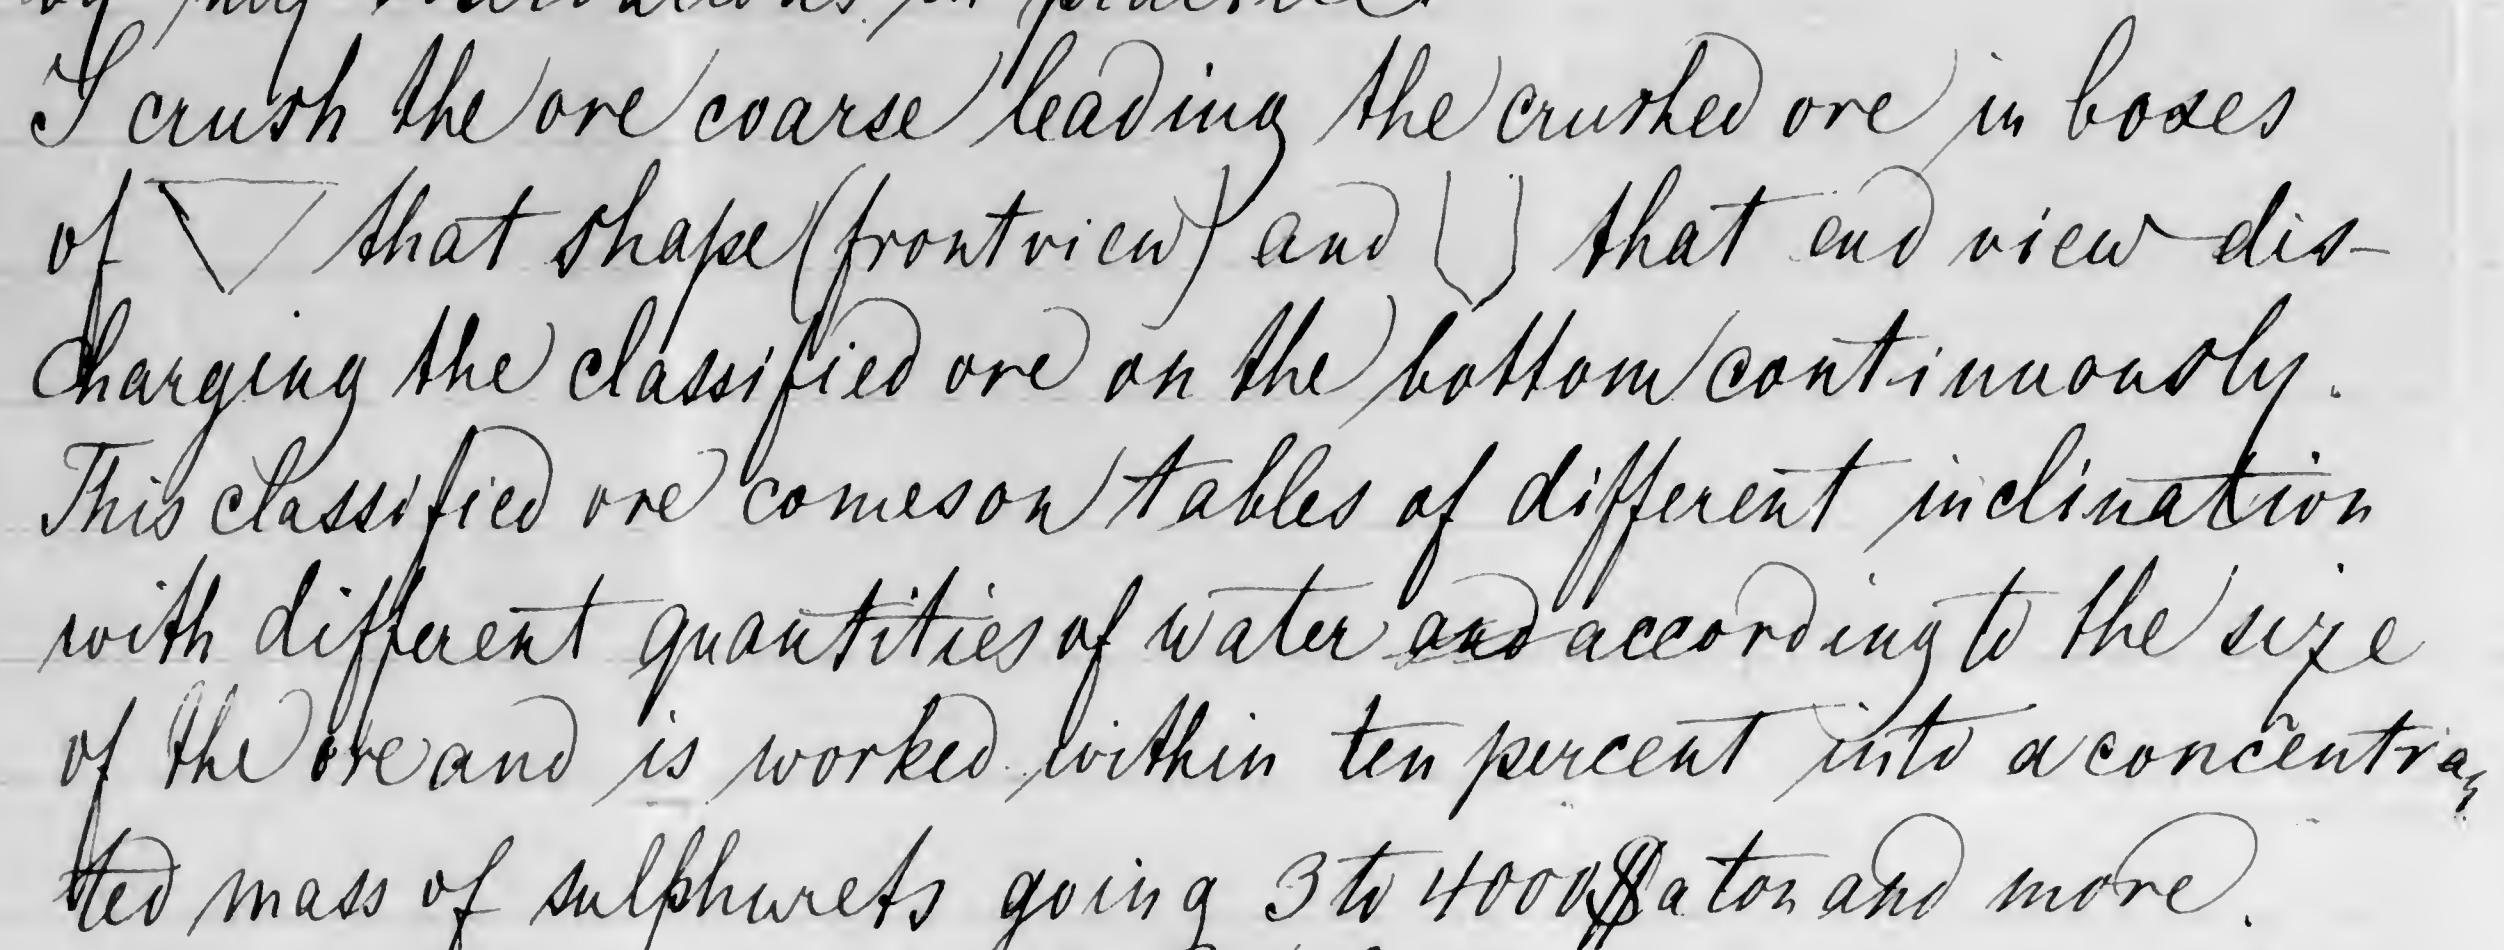 by my
I crush the ore coarse leading the crushed ore in boxes
of ▽ that shape (front view) and that end view dis-
charging the classified ore on the bottom continuously.
This classified ore comes on tables of different inclination
with different quantities of water and according to the size
of the ore and is worked within ten percent into a concentra,
ted mass of sulphurets going 3 to 4000$ a ton and more.